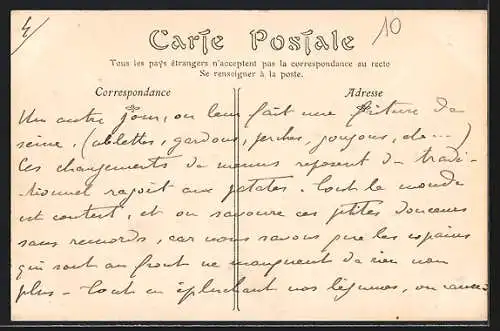 4
10
Carte Postale
Tous les pays étrangers n'acceptent pas la correspondance au recto
Se renseigner à la poste.
Correspondance
Adresse
Un autre jour, on leur fait une friture de
seine, (ablettes, gardons, perches, goujons, etc...)
Ces changements de menus reposent du tradi-
-tionnel ragoût aux patates. Tout le monde
est content, et on savoure ces ptites douceurs
sans remords, car nous savons que les copains
qui sont au front ne manquent de rien non
plus - Tout en épluchant nos légumes, on